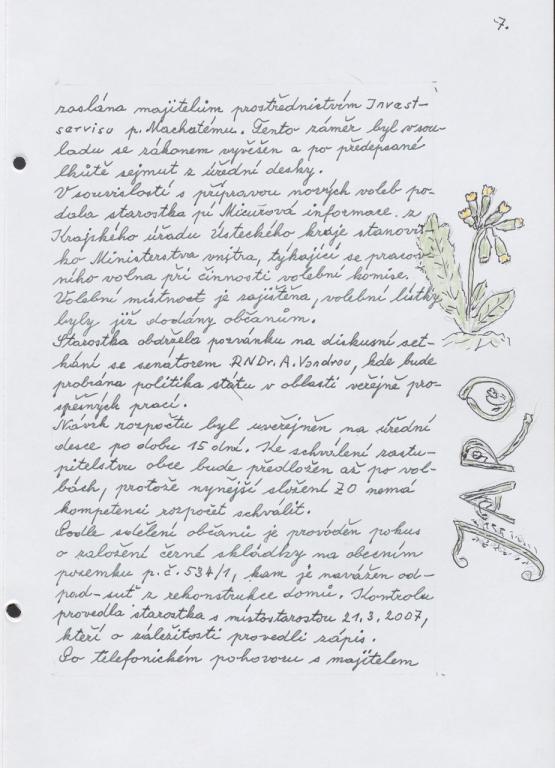 7.
zaslána majitelům prostřednictvím Invest-
servisu p. Machatému. Tento záměr byl v sou-
ladu se zákonem vyvěšen a po předepsané
lhůtě sejmut z úřední desky.
V souvislosti s přípravou nových voleb po-
dala starostka pí Micurová informace z
Krajského úřadu Ústeckého kraje stanovis-
ko Ministerstva vnitra, týkající se pracov-
ního volna při činnosti volební komise.
Volební místnost je zajištěna, volební lístky
byly již dodány občanům.
Starostka obdržela pozvánku na diskusní set-
kání se senátorem RNDr. A. Vondrou, kde bude
probrána politika státu v oblasti veřejně pro-
spěšných prací.
Návrh rozpočtu byl uveřejněn na úřední
desce po dobu 15 dní. Ke schválení zastu-
pitelstvu obce bude předložen až po vol-
bách, protože nynější složení ZO nemá
kompetenci rozpočet schválit.
Podle sdělení občanů je prováděn pokus
o založení černé skládky na obecním
pozemku p. č. 534/1, kam je navážen od-
pad-suť z rekonstrukce domů. Kontrolu
provedla starostka s místostarostou 21.3.2007,
kteří o záležitosti provedli zápis.
Po telefonickém pohovoru s majitelem
JARO